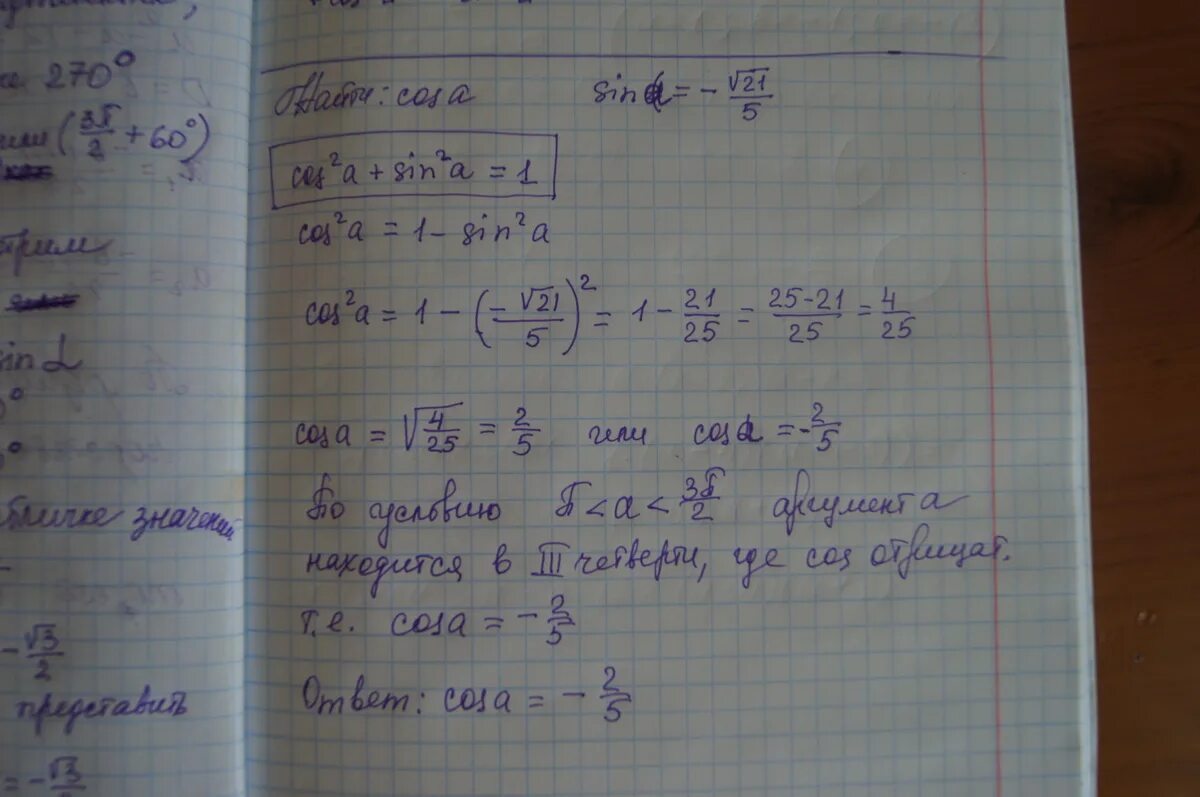 270°
или (3π/2 + 60°)
sin α
бличке значений
-√3/2
представить
= -√3
Найти: cos a sin α = - √21/5
cos²a + sin²a = 1
cos²a = 1 - sin²a
cos²a = 1 - (-√21/5)² = 1 - 21/25 = 25-21/25 = 4/25
cos a = √4/25 = 2/5 или cos α = -2/5
По условию π < a < 3π/2 аргумент a
находится в III четверти, где cos отрицат.
т.е. cos a = - 2/5
Ответ: cos a = - 2/5